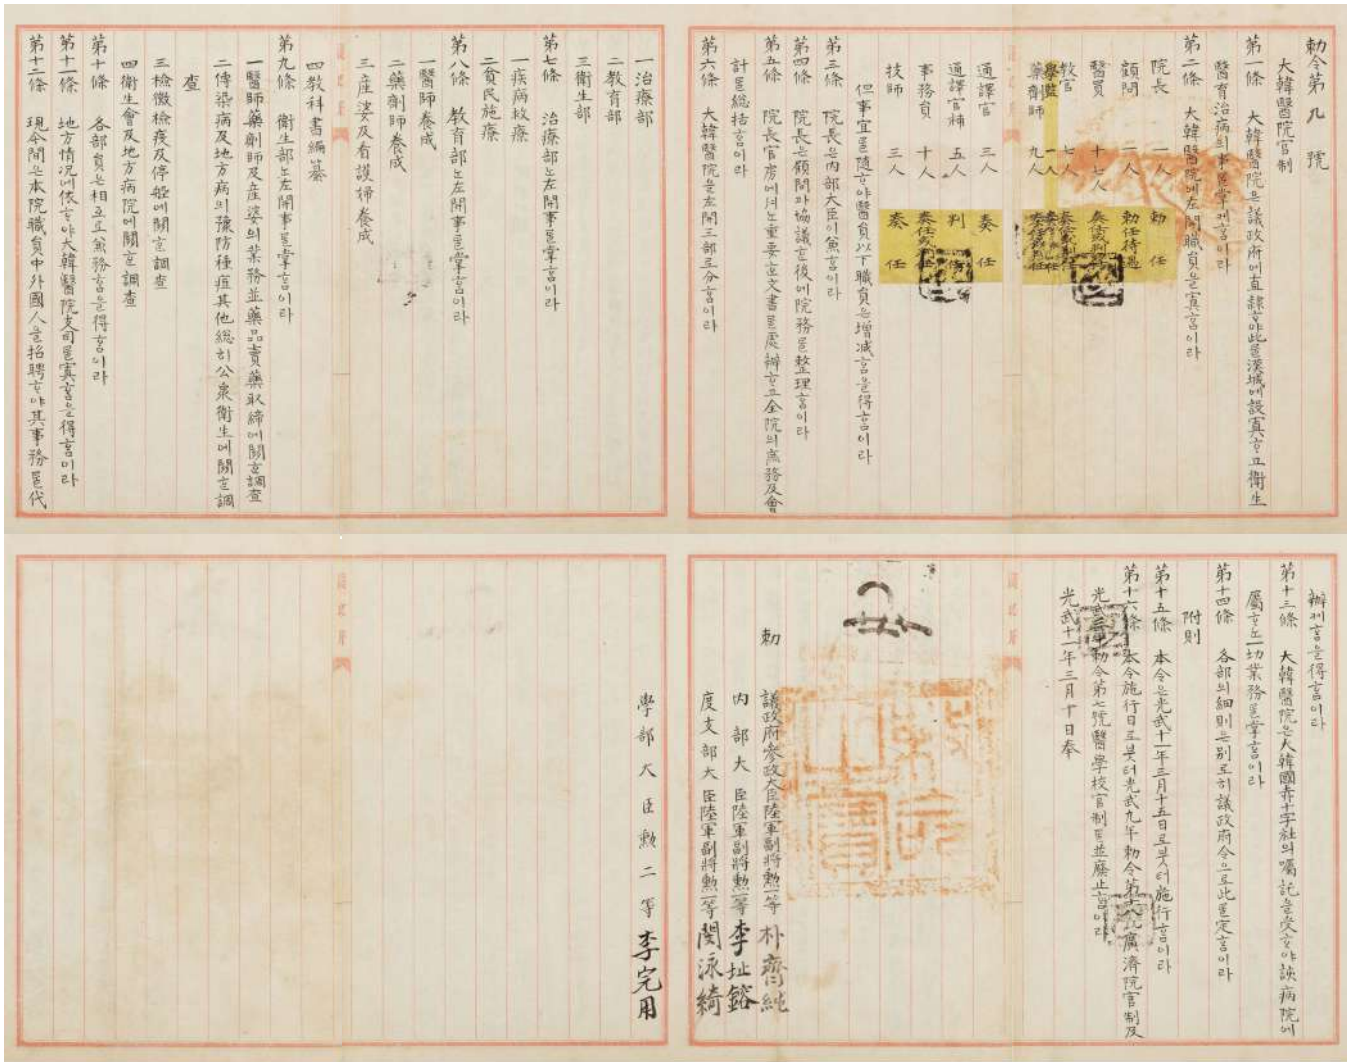 勅令第九號
大韓醫院官制
第一條 大韓醫院은議政府에直隷하야此를漢城에設寘하고衛生
醫育治病의事를掌케홈이라
第二條 大韓醫院에左開職員을寘홈이라
院長 一人 勅任
顧問 一人 勅任待遇
醫員 十七人 奏任或判任
敎官 七人 奏任或判任
學監 一人 奏任
藥劑師 九人 奏任或判任
通譯官 三人 奏任
通譯官補 五人 判任
事務員 十人 奏任或判任
技師 三人 奏任
但事宜를隨하야醫員以下職員은增減홈을得홈이라
第三條 院長은內部大臣이兼홈이라
第四條 院長은顧問과協議한後에院務를整理홈이라
第五條 院長官房에셔는重要한文書를處辦하고全院의庶務及會
計를總括홈이라
第六條 大韓醫院을左開三部로分홈이라
一治療部
二敎育部
三衛生部
第七條 治療部는左開事를掌홈이라
一疾病救療
二貧民施療
第八條 敎育部는左開事를掌홈이라
一醫師養成
二藥劑師養成
三産婆及看護婦養成
四敎科書編纂
第九條 衛生部는左開事를掌홈이라
一醫師藥劑師及産婆의業務並藥品賣藥取締에關한調査
二傳染病及地方病의豫防種痘其他總히公衆衛生에關한調
査
三檢黴檢疫及停船에關한調査
四衛生會及地方病院에關한調査
第十條 各部員은相互로兼務홈을得홈이라
第十一條 地方情況에依하야大韓醫院支司를寘홈을得홈이라
第十二條 現今間은本院職員中外國人을招聘하야其事務를代
辦케홈을得홈이라
第十三條 大韓醫院은大韓國赤十字社의囑託을受하야該病院에
屬한一切業務를掌홈이라
第十四條 各部의細則은別로히議政府令으로此를定홈이라
附則
第十五條 本令은光武十一年三月十五日로붓터施行홈이라
第十六條 本令施行日로붓터光武九年勅令第十八號廣濟院官制及
光武三年勅令第七號醫學校官制를並廢止홈이라
光武十一年三月十日奉
勅 議政府參政大臣陸軍副將勳一等朴齊純
內部大臣陸軍副將勳一等李址鎔
度支部大臣陸軍副將勳一等閔泳綺
學部大臣勳二等李完用